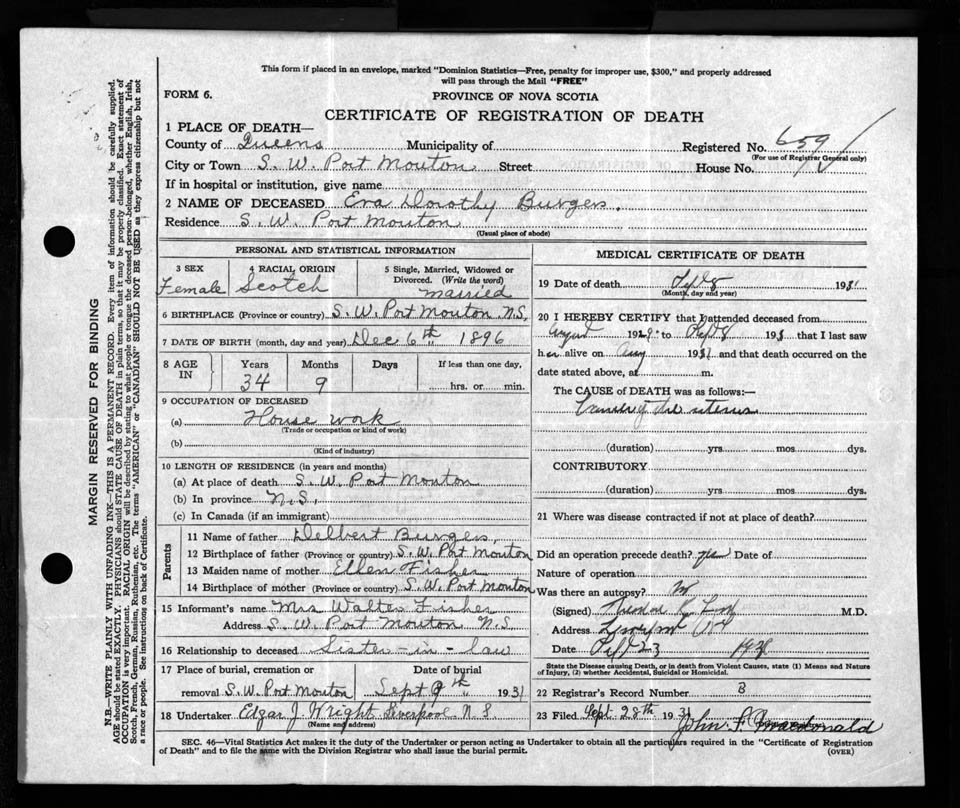 This form if placed in an envelope, marked "Dominion Statistics—Free, penalty for improper use, $300," and properly addressed
will pass through the Mail "FREE"
FORM 6.
PROVINCE OF NOVA SCOTIA
CERTIFICATE OF REGISTRATION OF DEATH
1 PLACE OF DEATH—
County of Queens Municipality of Registered No. 659
(For use of Registrar General only)
City or Town S. W. Port Mouton Street House No.
If in hospital or institution, give name
2 NAME OF DECEASED Eva Dorothy Burgess.
Residence S. W. Port Mouton
(Usual place of abode)
PERSONAL AND STATISTICAL INFORMATION
3 SEX Female
4 RACIAL ORIGIN Scotch
5 Single, Married, Widowed or Divorced. (Write the word) married
6 BIRTHPLACE (Province or country) S. W. Port Mouton N.S.
7 DATE OF BIRTH (month, day and year) Dec 6th 1896
8 AGE IN Years 34 Months 9 Days If less than one day, hrs. or min.
9 OCCUPATION OF DECEASED
(a) House work
(Trade or occupation or kind of work)
(b)
(Kind of industry)
10 LENGTH OF RESIDENCE (in years and months)
(a) At place of death S. W. Port Mouton
(b) In province N.S.
(c) In Canada (if an immigrant)
Parents
11 Name of father Delbert Burgess,
12 Birthplace of father (Province or country) S. W. Port Mouton
13 Maiden name of mother Ellen Fisher
14 Birthplace of mother (Province or country) S. W. Port Mouton
15 Informant's name Mrs Walter Fisher
Address S. W. Port Mouton N.S.
16 Relationship to deceased Sister-in-law
17 Place of burial, cremation or removal S. W. Port Mouton Date of burial Sept 9th 1931
18 Undertaker Edgar J. Wright Liverpool N.S.
(Name and address)
MEDICAL CERTIFICATE OF DEATH
19 Date of death Sept 8 1931
(Month, day and year)
20 I HEREBY CERTIFY that I attended deceased from
August 1929 to Sept 8 193 that I last saw
her alive on Aug 1931 and that death occurred on the
date stated above, at m.
The CAUSE of DEATH was as follows:
Cancer of the uterus
(duration) yrs. mos. dys.
CONTRIBUTORY
(duration) yrs. mos. dys.
21 Where was disease contracted if not at place of death?
Did an operation precede death? yes Date of
Nature of operation
Was there an autopsy? No
(Signed) M.D.
Address
Date Sept 23
State the Disease causing Death, or in death from Violent Causes, state (1) Means and Nature
of Injury, (2) whether Accidental, Suicidal or Homicidal.
22 Registrar's Record Number 3
23 Filed Sept. 28th 1931 John Macdonald
SEC. 46—Vital Statistics Act makes it the duty of the Undertaker or person acting as Undertaker to obtain all the particulars required in the "Certificate of Registration
of Death" and to file the same with the Division Registrar who shall issue the burial permit.
(OVER)
MARGIN RESERVED FOR BINDING
N.B.—WRITE PLAINLY WITH UNFADING INK—THIS IS A PERMANENT RECORD. Every item of information should be carefully supplied.
AGE should be stated EXACTLY. PHYSICIANS should STATE CAUSE OF DEATH in plain terms, so that it may be properly classified. Exact statement of
OCCUPATION is very important. RACIAL ORIGIN will be described by stating to what people or tongue the deceased person belonged, whether English, Irish,
Scotch, French, German, Russian, Ruthenian, etc. The terms "AMERICAN" or "CANADIAN" SHOULD NOT BE USED as they express citizenship but not
a race or people. See instructions on back of Certificate.